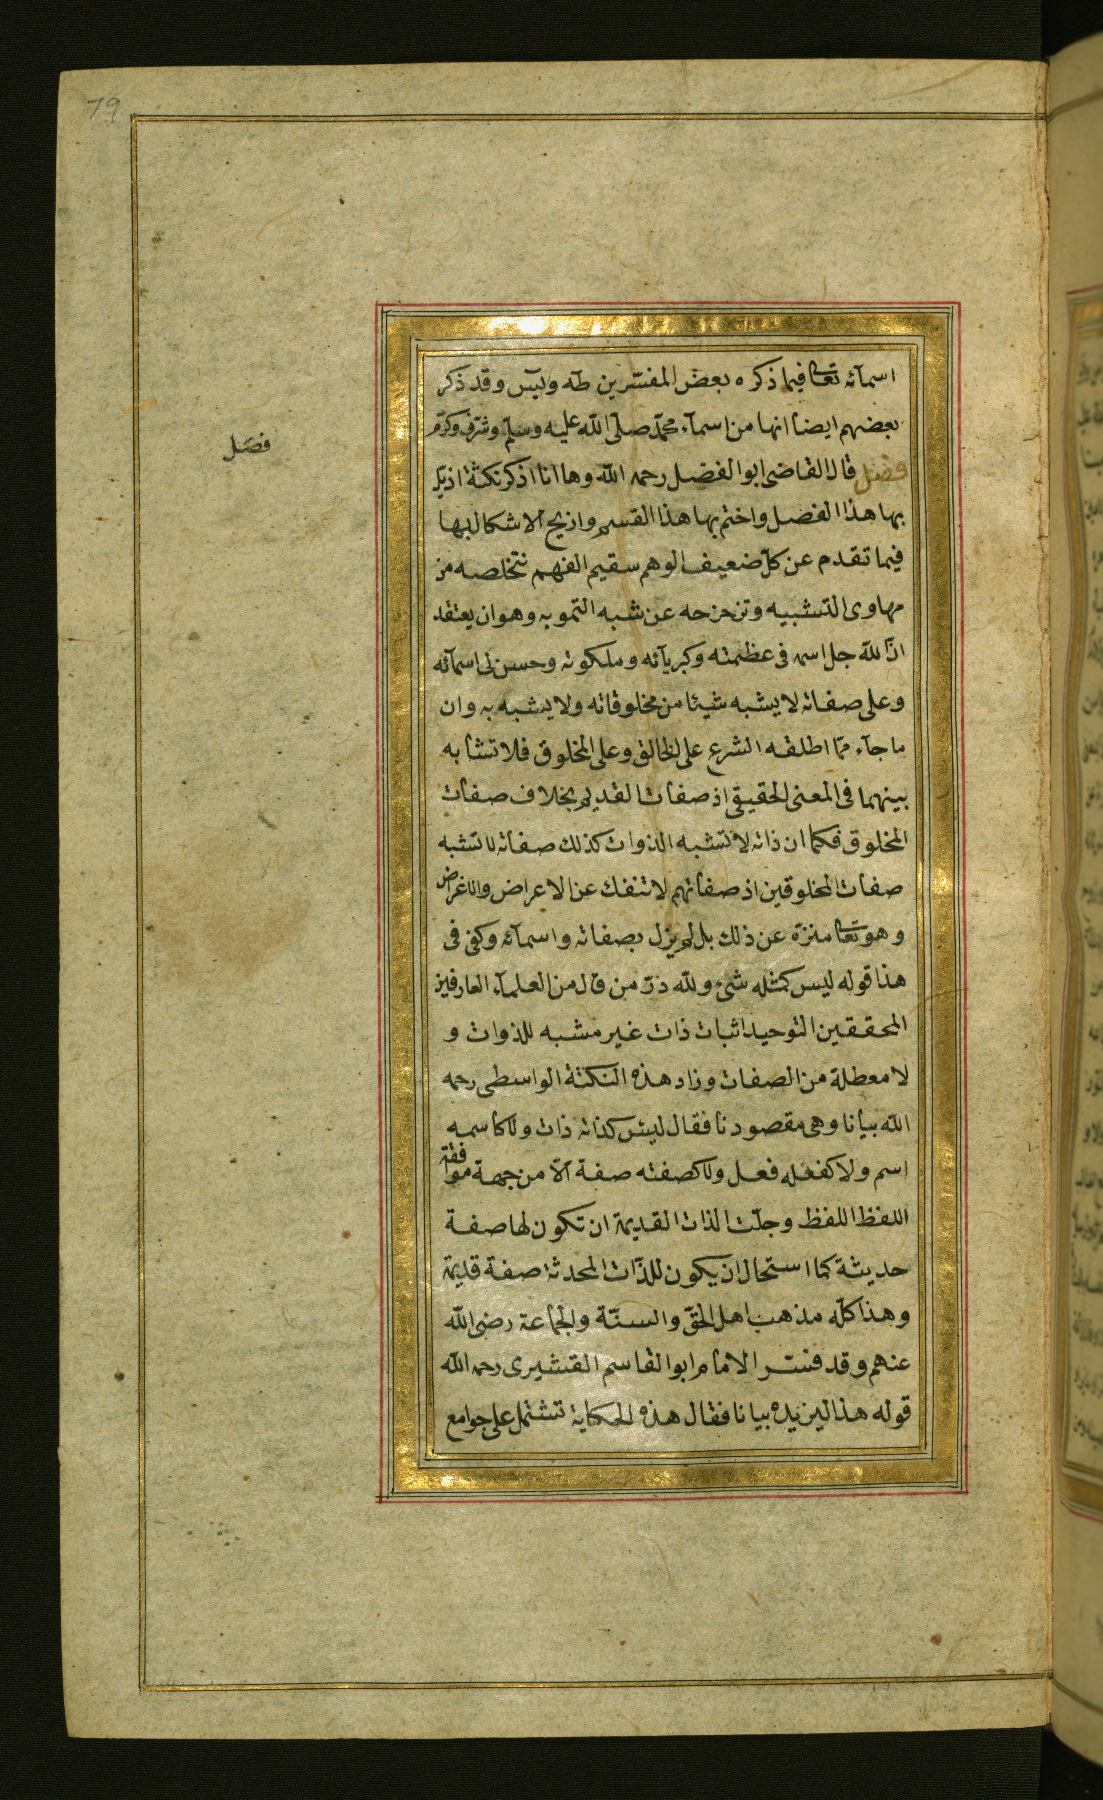 79
اسمآئه تعالى فيما ذكره بعض المفسّرين طه ويس وقد ذكر
بعضهم ايضا انها من اسمآء محمّد صلى الله عليه وسلّم وشرّف وكرّم
فصل
فصل قال القاضى ابو الفضل رحمه الله وها انا اذكر نكتة اذيّل
بها هذا الفصل واختم بها هذا القسم وازيح الاشكال بها
فيما تقدم عن كلّ ضعيف الوهم سقيم الفهم تخلصه من
مهاوى التشبيه وتزحزحه عن شبه التمويه وهو ان يعتقد
انّ الله جل اسمه فى عظمته وكبريآئه وملكوته وحسنى اسمآئه
وعلى صفاته لا يشبه شيئا من مخلوقاته ولا يشبه به وان
ما جآء ممّا اطلقه الشرع على الخالق وعلى المخلوق فلا تشابه
بينهما فى المعنى الحقيقى اذ صفات القديم بخلاف صفات
المخلوق فكما ان ذاته لا تشبه الذوات كذلك صفاته لا تشبه
صفات المخلوقين اذ صفاتهم لا تنفك عن الاعراض والاغراض
وهو تعالى منزّه عن ذلك بل لم يزل بصفاته واسمآئه وكفى فى
هذا قوله ليس كمثله شىء ولله درّ من قال من العلمآء العارفين
المحققين التوحيد اثبات ذات غير مشبه للذوات و
لا معطلة من الصفات وزاد هذه النكتة الواسطى رحمه
الله بيانا وهى مقصودنا فقال ليس كذاته ذات ولا كاسمه
اسم ولا كفعله فعل ولا كصفته صفة الّا من جهة موافقة
اللفظ اللفظ وجلّت الذات القديمة ان تكون لها صفة
حديثة كما استحال ان يكون للذّات المحدثة صفة قديمة
وهذا كلّه مذهب اهل الحقّ والسنّة والجماعة رضى الله
عنهم وقد فسّر الامام ابو القاسم القشيرى رحمه الله
قوله هذا ليزيده بيانا فقال هذه الحكاية تشتمل على جوامع